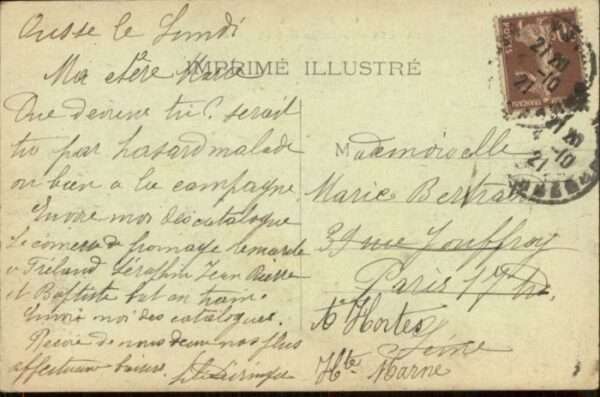 Ousse le Lundi
Ma chère Marie
IMPRIMÉ ILLUSTRÉ
Que deviens tu? serait
tu par hasard malade
ou bien a la campagne
Envoie moi des catalogue
Le commerce de fromage remarche
Fréland Séraphin Jean Pierre
et Baptiste bat en train.
Envoie moi des catalogues.
Reçoie de nous deux nos plus
affectueux baisers.
Mademoiselle
Marie Bertrand
39 rue Jouffroy
Paris 17
Hortes
Seine
Hte Marne
POSTES
21 20
-10
21